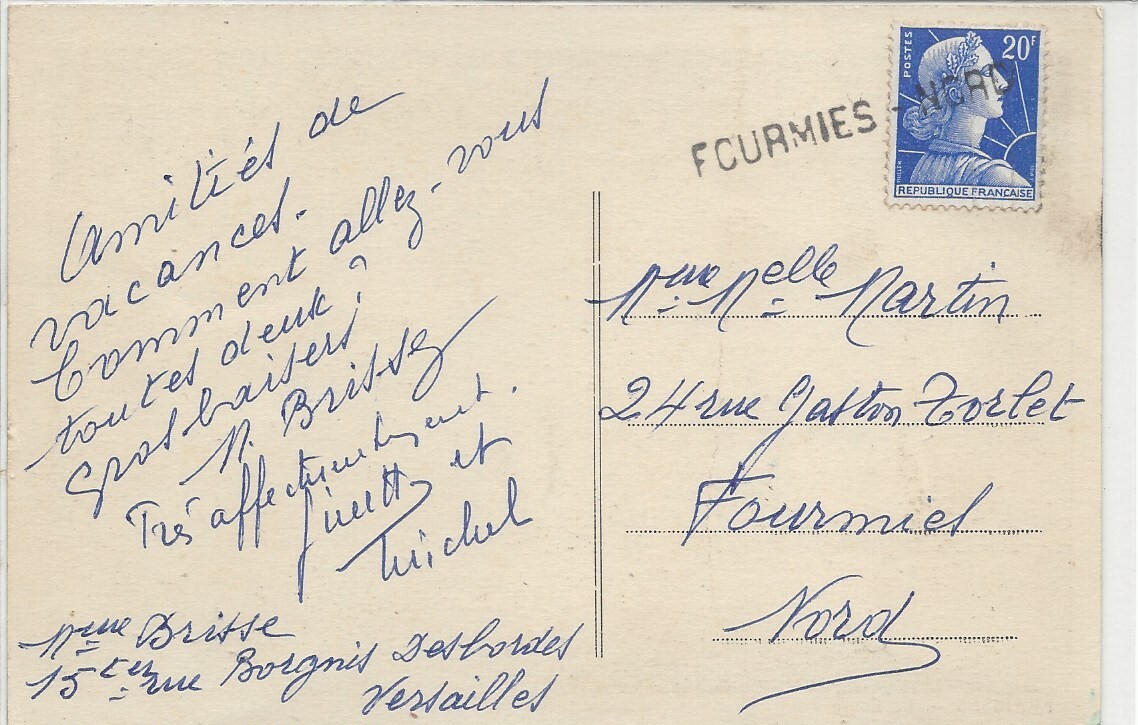 Amitiés de
vacances.
Comment allez-vous
toutes deux ?
Gros baisers
M. Brisse
Très affectueusement.
Ginette et
Michel
Mme Brisse
15 ter rue Borgnis Desbordes
Versailles
FOURMIES - NORD
POSTES
20F
REPUBLIQUE FRANÇAISE
Mme Melle Martin
24 rue Gaston Torlet
Fourmies
Nord